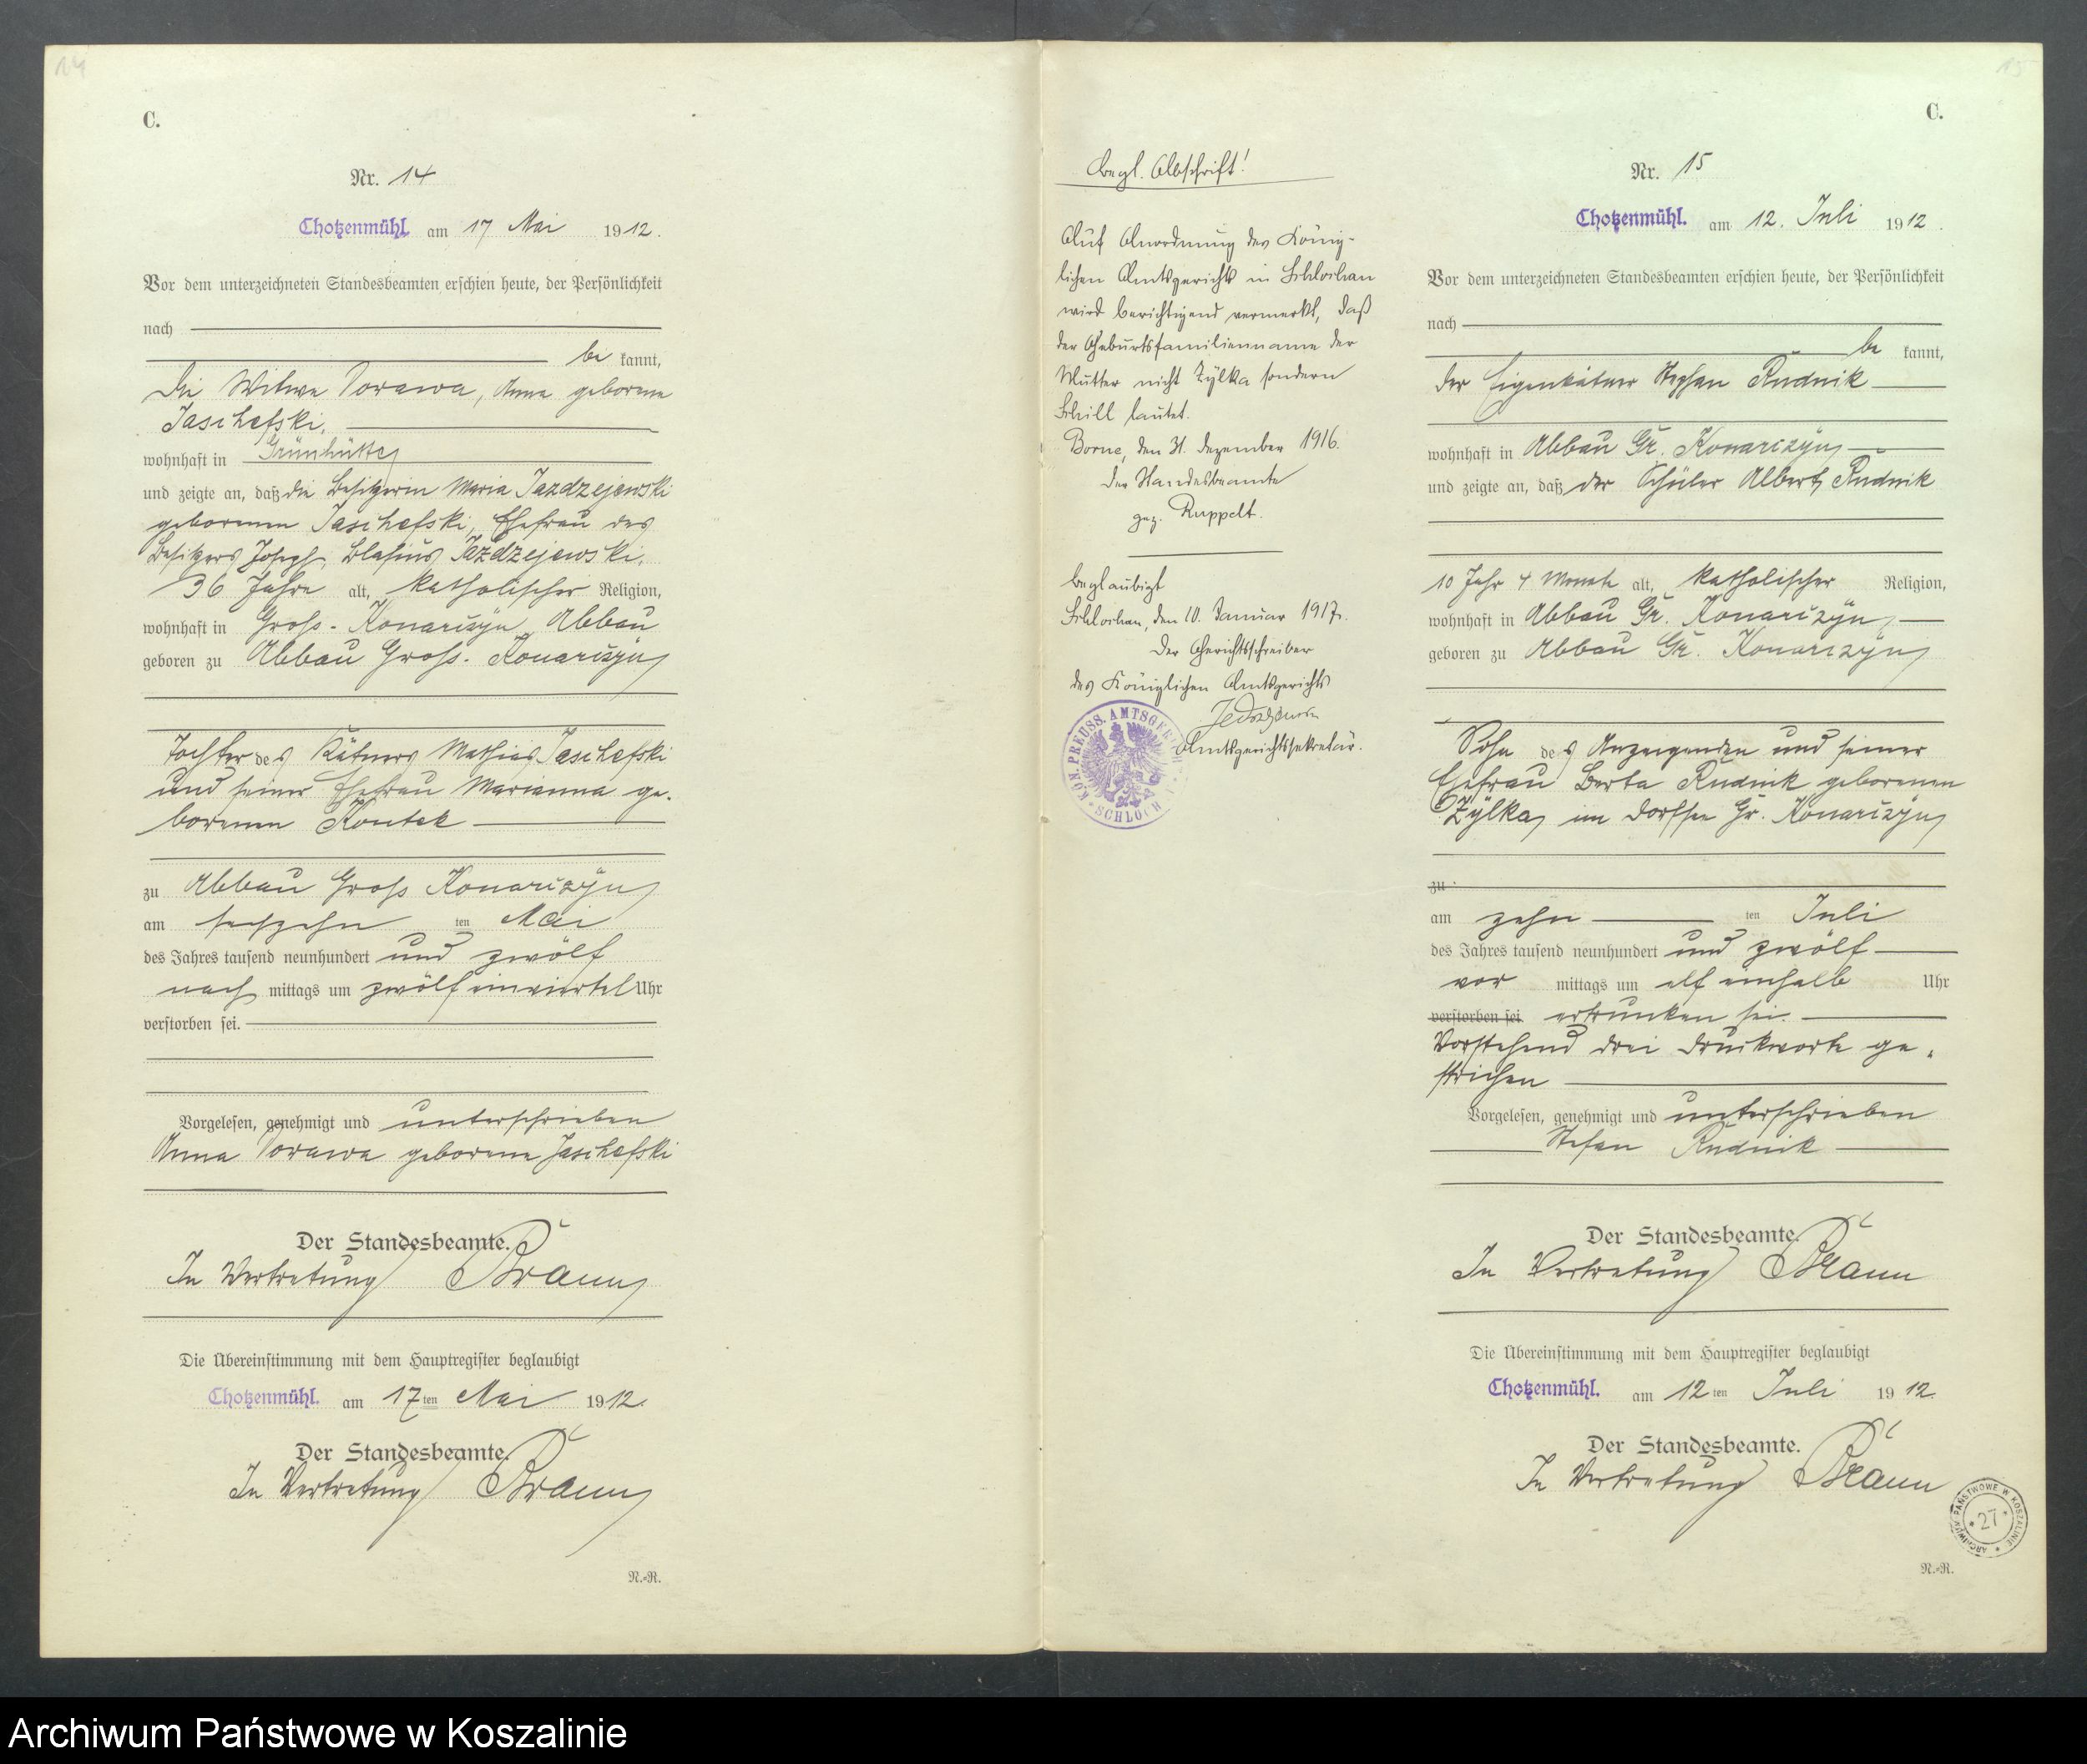 14
C.
Nr. 14
Chotzenmühl. am 17 Mai 1912.
Vor dem unterzeichneten Standesbeamten erschien heute, der Persönlichkeit
nach
be kannt,
die Witwe Worawa, Anna geborene
Jaschefski,
wohnhaft in Grünhütte
und zeigte an, daß die Besitzerin Maria Jazdzejewski
geborenen Jaschefski, Ehefrau des
Besitzers Joseph, Blasius Jazdzejewski,
36 Jahre alt, katholischer Religion,
wohnhaft in Gross-Konarczyn Abbau
geboren zu Abbau Gross-Konarczyn
Tochter des Kätners Mathias Jaschefski
und seiner Ehefrau Marianna ge-
borenen Kontek
zu Abbau Gross Konarczyn
am sechzehn ten Mai
des Jahres tausend neunhundert und zwölf
nach mittags um zwölf einviertel Uhr
verstorben sei.
Vorgelesen, genehmigt und unterschrieben
Anna Worawa geborene Jaschefski
Der Standesbeamte.
In Vertretung Braun
Die Übereinstimmung mit dem Hauptregister beglaubigt
Chotzenmühl. am 17 ten Mai 1912.
Der Standesbeamte.
In Vertretung Braun
N.=R.
Begl. Abschrift!
Auf Anordnung des König-
lichen Amtsgerichts in Schlochau
wird berichtigend vermerkt, daß
der Geburtsfamilienname der
Mutter nicht Zylka sondern
Schill lautet.
Borne, den 31. Dezember 1916.
Der Standesbeamte
gez. Ruppelt.
Beglaubigt
Schlochau, den 10. Januar 1917.
Der Gerichtsschreiber
des Königlichen Amtsgerichts
Amtsgerichtssekretär.
KÖN. PREUSS. AMTSGERICHT SCHLOCHAU
15
C.
Nr. 15
Chotzenmühl. am 12. Juli 1912.
Vor dem unterzeichneten Standesbeamten erschien heute, der Persönlichkeit
nach
be kannt,
der Eigenkätner Stephan Rudnik
wohnhaft in Abbau Gr. Konarczyn
und zeigte an, daß der Schüler Albert Rudnik
10 Jahr 4 Monate alt, katholischer Religion,
wohnhaft in Abbau Gr. Konarczyn,
geboren zu Abbau Gr. Konarczyn
Sohn des Anzeigenden und seiner
Ehefrau Berta Rudnik geborenen
Zylka, im Dorfsee Gr. Konarczyn
zu
am zehn ten Juli
des Jahres tausend neunhundert und zwölf
vor mittags um elf einhalb Uhr
verstorben sei ertrunken sei.
Vorstehend drei Druckworte ge-
strichen
Vorgelesen, genehmigt und unterschrieben
Stefan Rudnik
Der Standesbeamte.
In Vertretung Braun
Die Übereinstimmung mit dem Hauptregister beglaubigt
Chotzenmühl. am 12 ten Juli 1912.
Der Standesbeamte.
In Vertretung Braun
ARCHIWUM PAŃSTWOWE W KOSZALINIE * 27 *
N.=R.
Archiwum Państwowe w Koszalinie